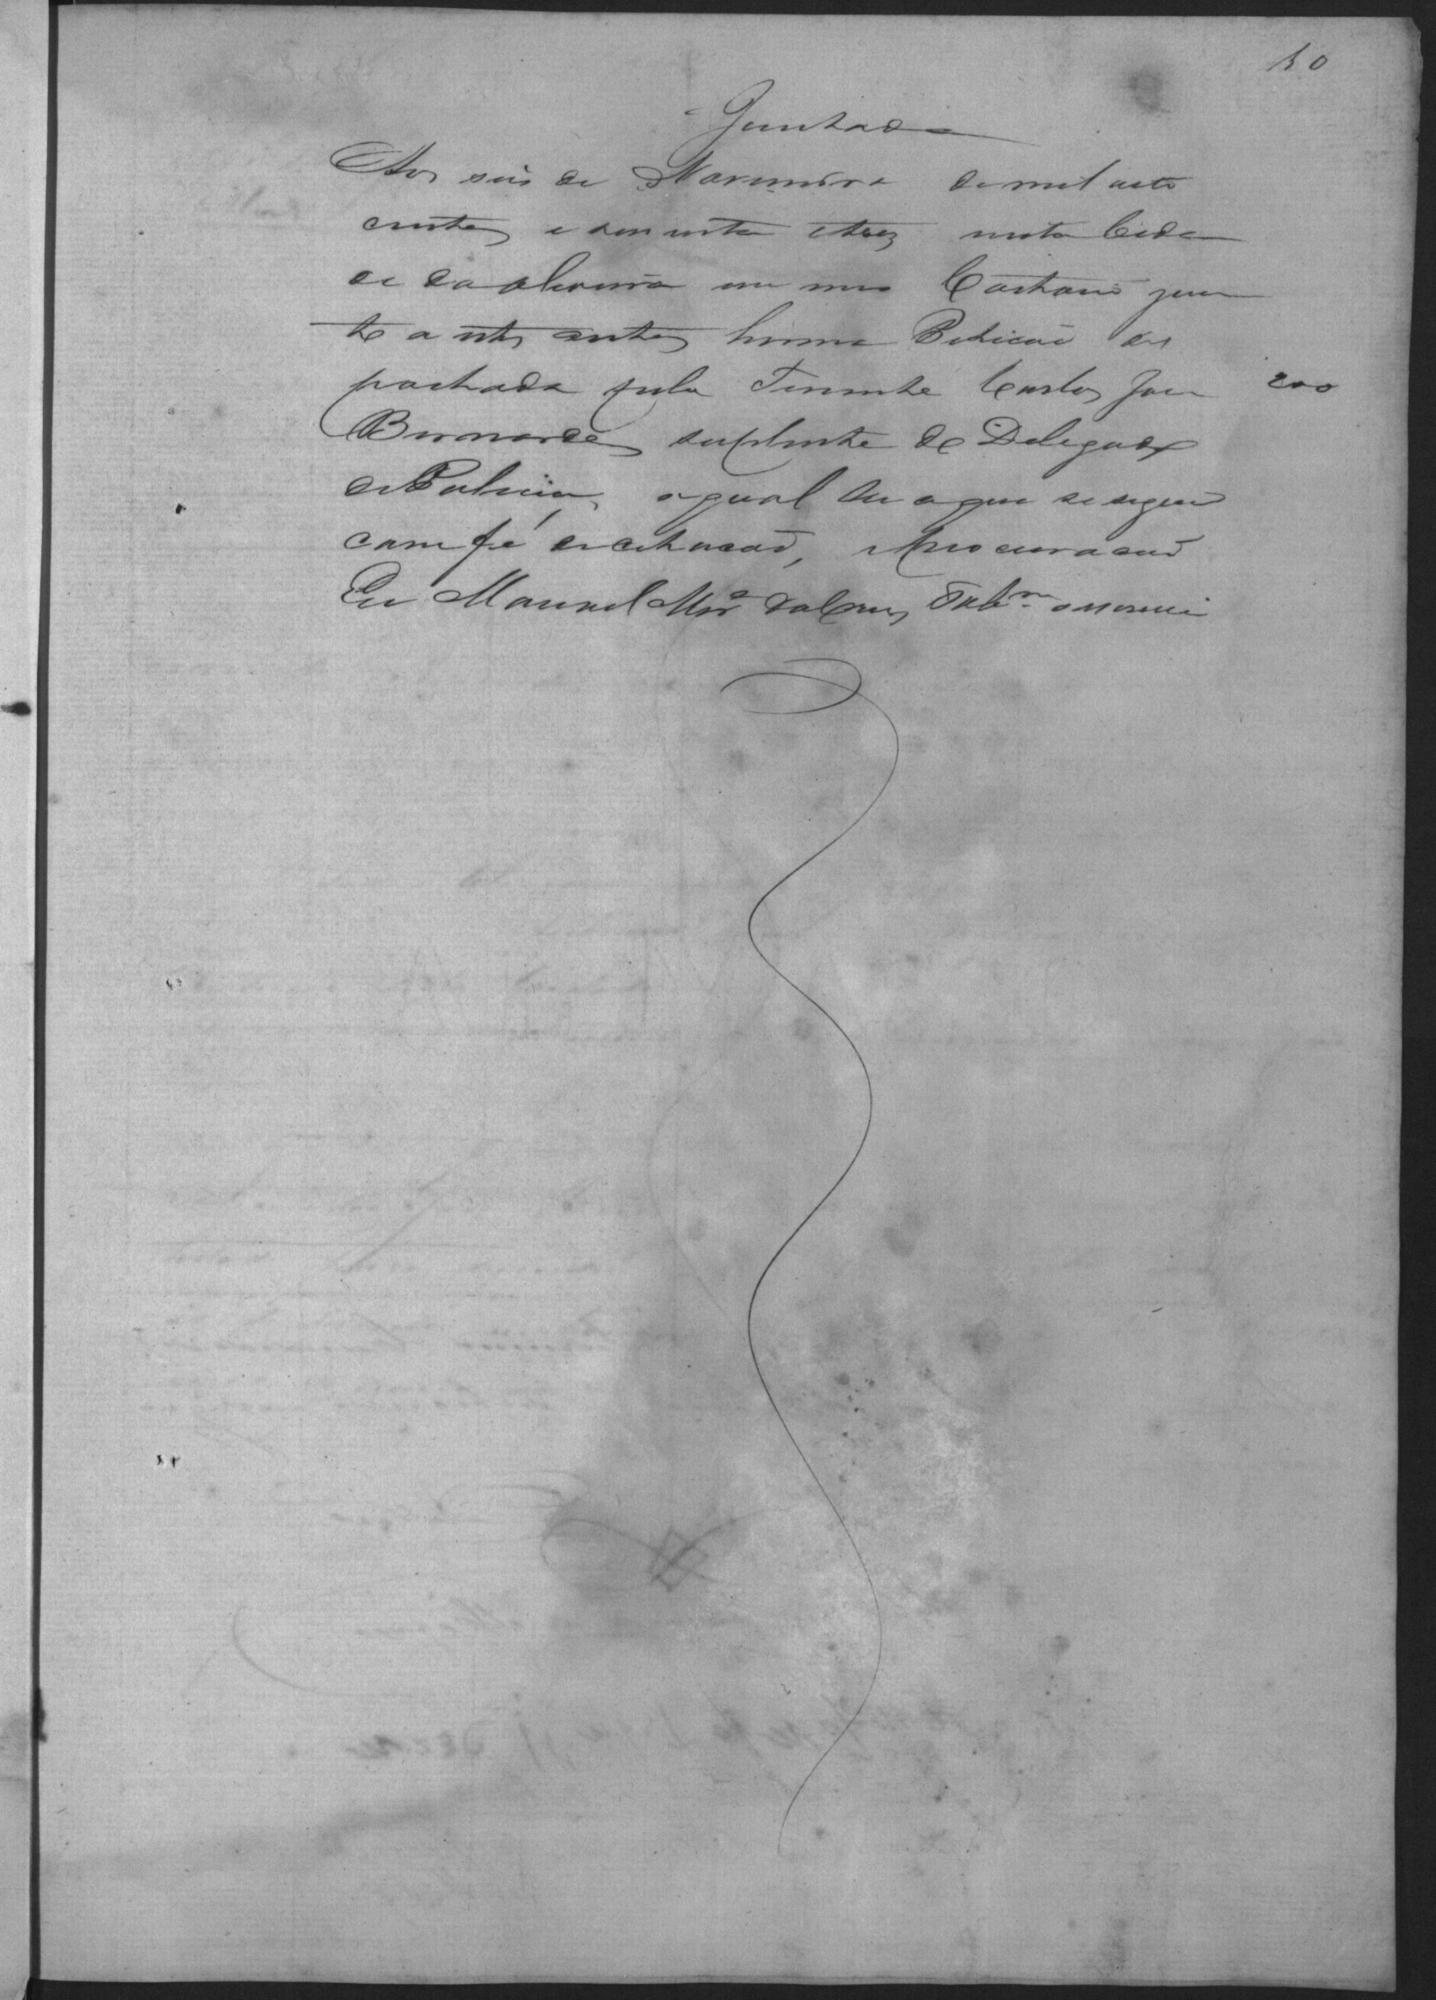 10
Juntada
Aos seis de Novembro de mil oito
centos e sessenta e trez nesta Cida
de da em meo Cartorio jun
to a estes autos huma Peticaõ des
pachada pelo Tenente Carlos Jose 200
Bernardes suplente de Delegado
de Policia, a qual he a que se segue
com fé de citacaõ, e Procuracaõ
Eu Manoel Mra da Cruz Tabam o escrevi